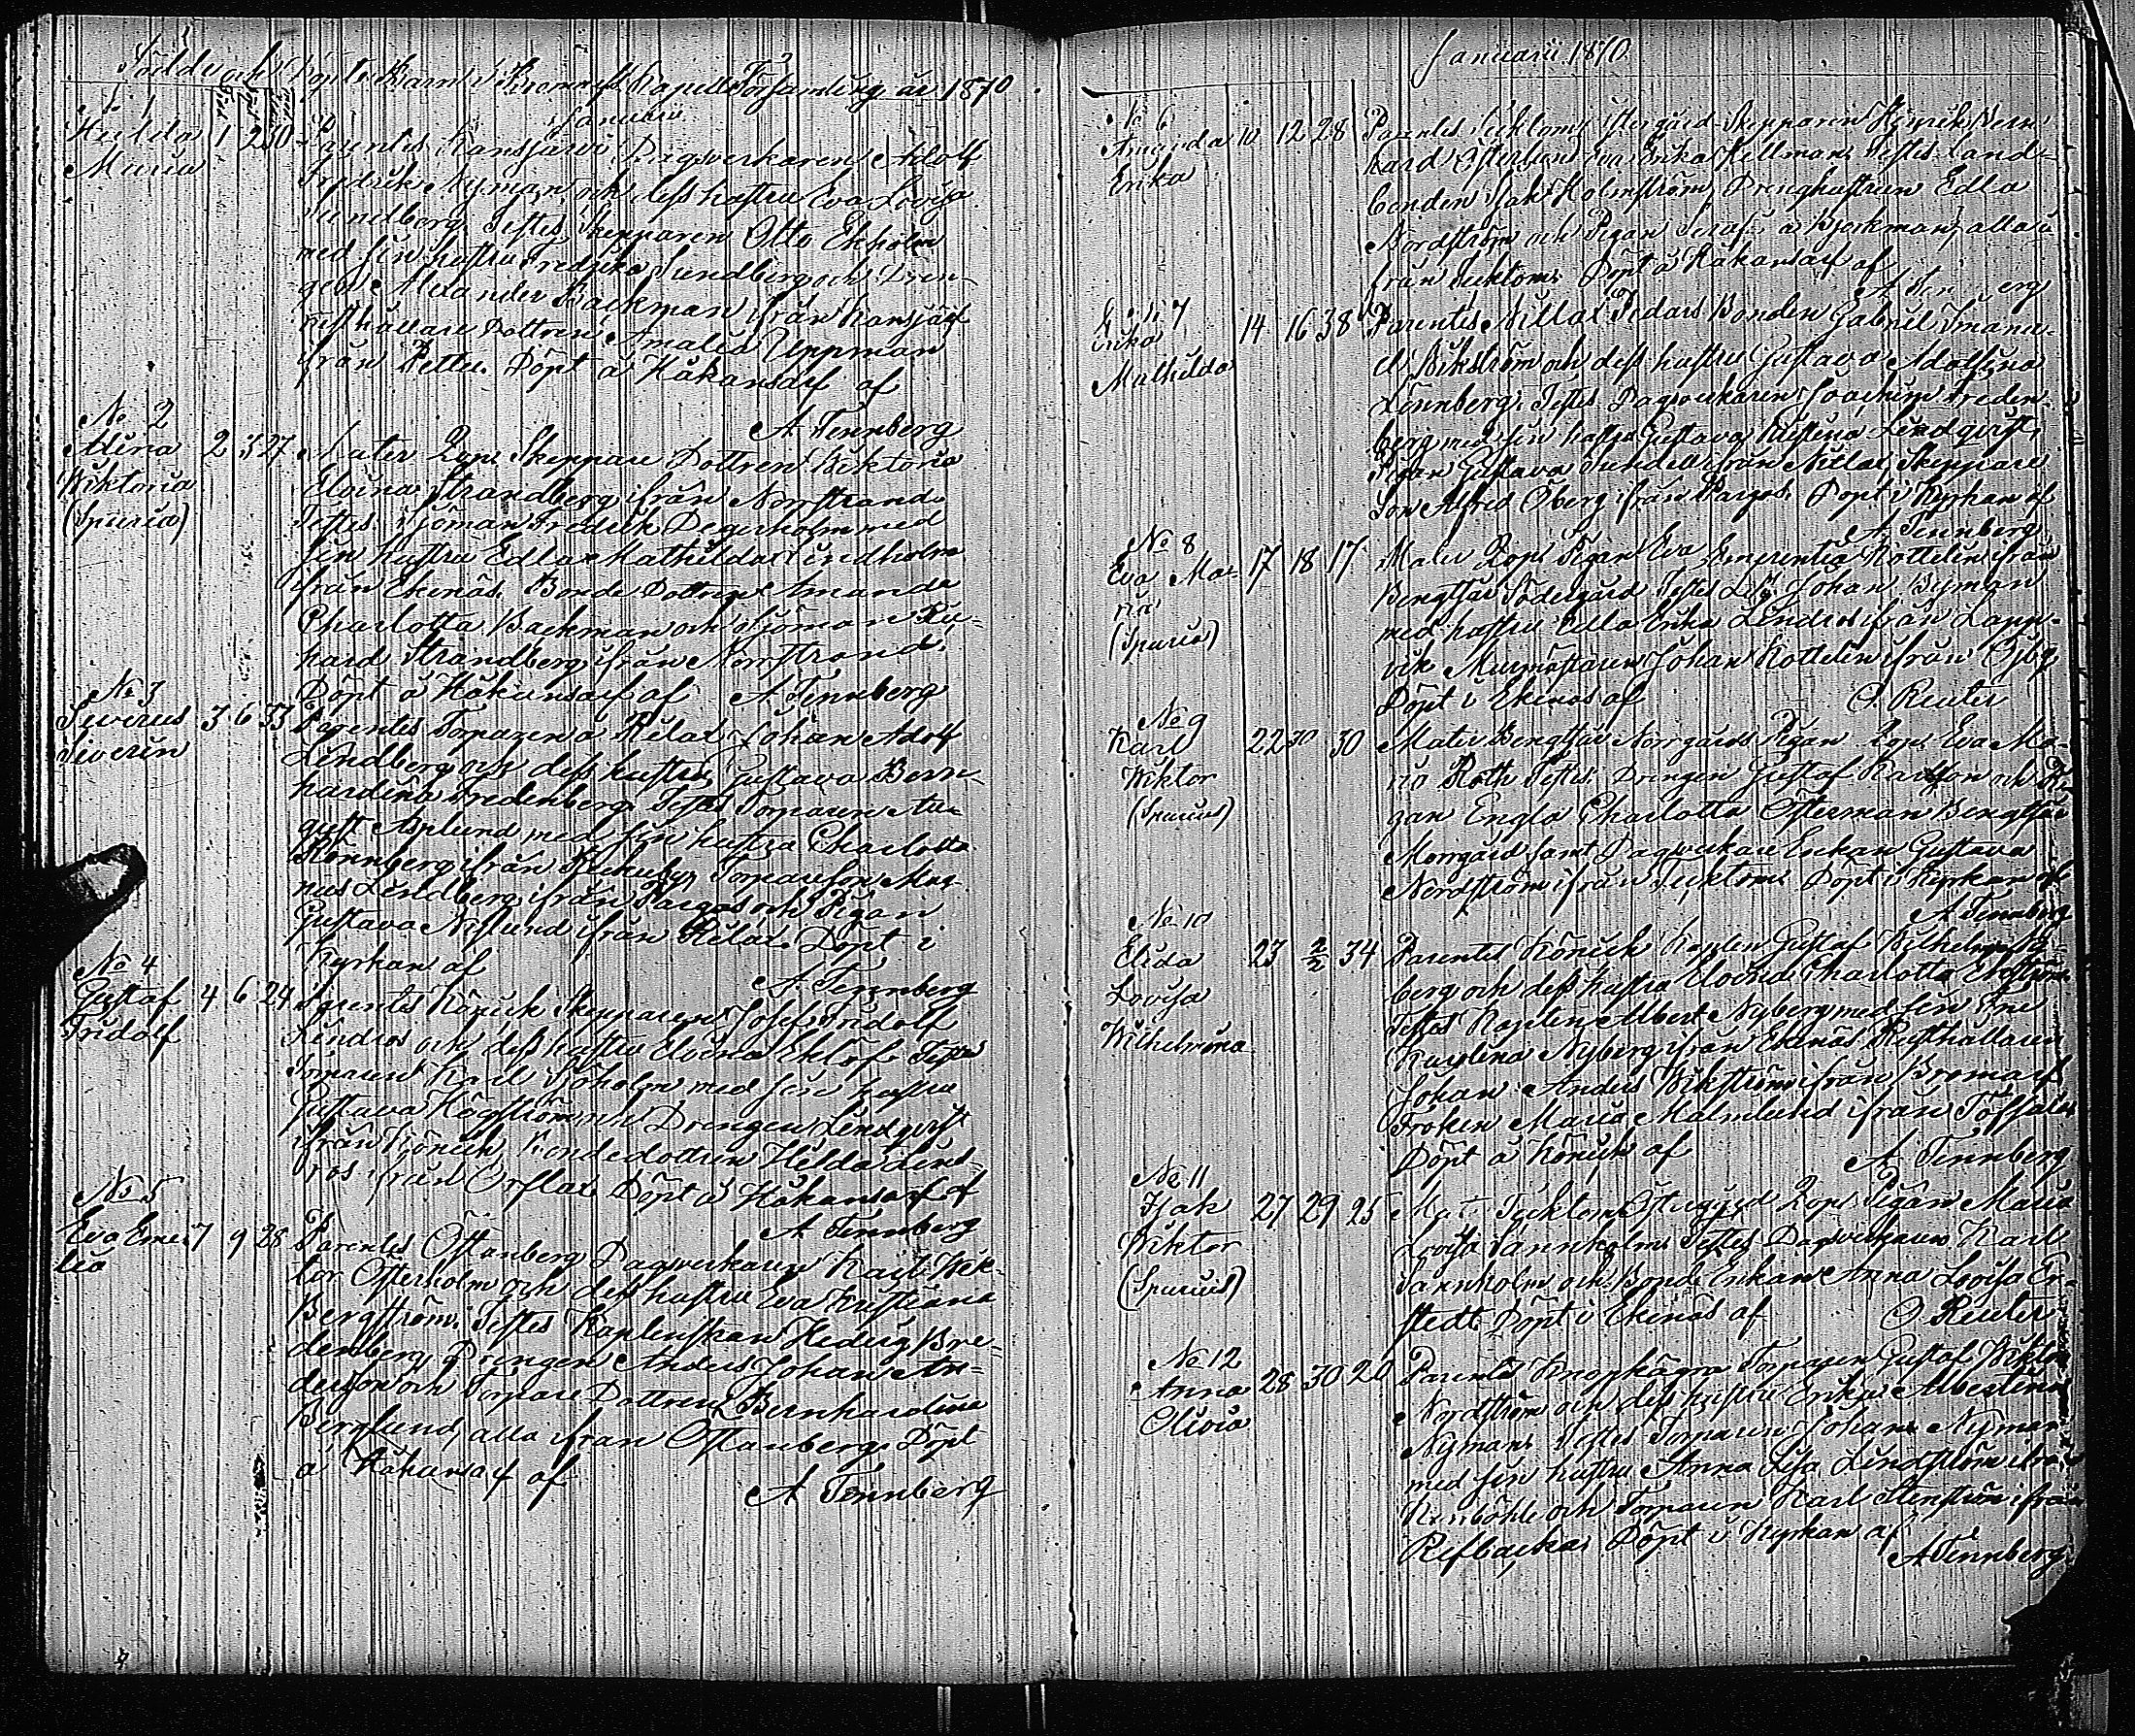 Födde och Döpte Barn i Bromarfs Kapell Församling år 1870
Januarii
No 1
Hulda 1 2 30 Parentes Kansjärvi Dagsverkaren Adolf
Maria
Fredrik Nyman och dess hustru Eva Lovisa
Sundberg. Testes Skepparen Otto Ekholm
med sin hustru Fredrika Sundberg och Dren-
gen Alexander Backman ifrån Kansjärf
Rusthållare Dottren Amalia Uppman
från Dettu. Döpt å Håkansarf af
A Tennberg
No 2
Alina 2 3 27 Mater Lösa Skeppare Dottren Wiktoria
Wiktoria
(Spuria)
Elvina Strandberg ifrån Norrstrand
Testes Sjöman Fredrik Degerholm med
sin hustru Edla Mathilda Lindholm
ifrån Ekenäs. Bonde Dottren Amanda
Charlotta Backman och Sjöman Ri-
kard Strandberg ifrån Norrstrand.
Döpt å Håkansarf af A Tennberg
No 3
Siverus 3 6 33 Parentes Torparen å Rilax Johan Adolf
Siverin
Lindberg och dess hustru Gustava Bern-
hardina Fredenberg Testes Torparen Au-
gust Asplund med sin hustru Charlotta
Rönnberg ifrån Torpareson Mag-
nus Lindberg ifrån Pargas och Pigan
Gustava Nislund ifrån Rilax. Döpt i
Kyrkan af
A Tennberg
No 4
Gustaf 4 6 24 Parentes Könick Skepparen Josef Fridolf
Fridolf
Lindros och dess hustru Elvina Eklöf Testes
Torparen Karl Sjöholm med sin hustru
Gustava Höggström och Drengen Lindqvist
ifrån Könick, Bondedottren Hilda Lind-
ros ifrån Orslax Döpt å Håkansarf af
A Tennberg
No 5
Eva Eme- 7 9 28 Parentes Östanberg Dagsverkaren Karl Wik-
lia
tor Österholm och dess hustru Eva Kristiana
Bergström. Testes Kaplenskan Hedvig Bre-
denberg, Drengen Anders Johan An-
dersson och Torpare Dottren Bernhardina
Berglund, alla ifrån Östanberg. Döpt
å Håkansarf af
A Tennberg
Januarii 1870
No 6
Amanda 10 12 28 Parentes Täcktom Östergård Skepparen Henrik Bern-
Erika
hard Österlund Eva Erika Hellman. Testes Land-
bonden Isak Holmström, Drenghustrun Edla
Nordström och Pigan Serafia Björkman, alla
från Täcktom. Döpt å Håkansarf af
No 7
Erika 14 16 38 Parentes Nitlax Pedars Bonden Gabriel Imanu-
Mathilda
el Wikström och dess hustru Gustava Adolfina
Lönnberg. Testes Dagsverkaren Joachim Freden-
berg med sin hustru Gustava Kristina Lindqvist,
Pigan Gustava Sundell ifrån Nitlax Skeppare
Son Alfred Öberg ifrån Pargas. Döpt i Kyrkan af
A Tennberg
No 8
Eva Ma- 17 18 17 Mater Lösa Pigan Eva Emerentia Kottelin ifrån
ria
(Spuria)
Bengtsår Södergård Testes Johan Byman
med hustru Edla Erika Lindros ifrån Lapp-
vik Murmästaren Johan Kottelin ifrån Öjby
Döpt i Ekenäs af O. Reuter
No 9
Karl 22 30 30 Mater Bengtsår Norrgårds Pigan Lösa Eva Ma-
Wiktor
(Spurius)
ria Roth Testes Drengen Gustaf Karlsson och Pi-
gan Engla Charlotta Österman Bengtsår
Norrgård samt Dagsverkare Enkan Gustava
Nordström ifrån Täcktom. Döpt i Kyrkan af
A Tennberg
No 10
Elida 23 2/2 34 Parentes Könick Kaplen Gustaf Wilhelm
Lovisa
Wilhelmina
berg och dess hustru Elvina Charlotta Ekström
Testes Kaplen Albert Nyberg med sin Fru
Karolina Nyberg ifrån Ekenäs Rusthållaren
Johan Anders Wikström ifrån Bromarf
Fröken Maria Malmlund ifrån Töffsala
Döpt å Könick af A Tennberg
No 11
Isak 27 29 25 Mater Täcktom Östergård Lösa Pigan Maria
Wiktor
(Spurius)
Lovisa Sannholm Testes Dagsverkaren Karl
Sannholm och Bonde Enkan Anna Lovisa Er-
stedt Döpt i Ekenäs af O. Reuter
No 12
Anna 28 30 20 Parentes Knopkägra Torparen Gustaf Wiktor
Olivia
Nordström och dess hustru Erika Albertina
Nyman. Testes Torparen Johan Nyman
med sin hustru Anna Lisa Lindström ifrån
Kinböhle och Torparen Karl Stenström ifrån
Refbacka Döpt i Kyrkan af
A Tennberg